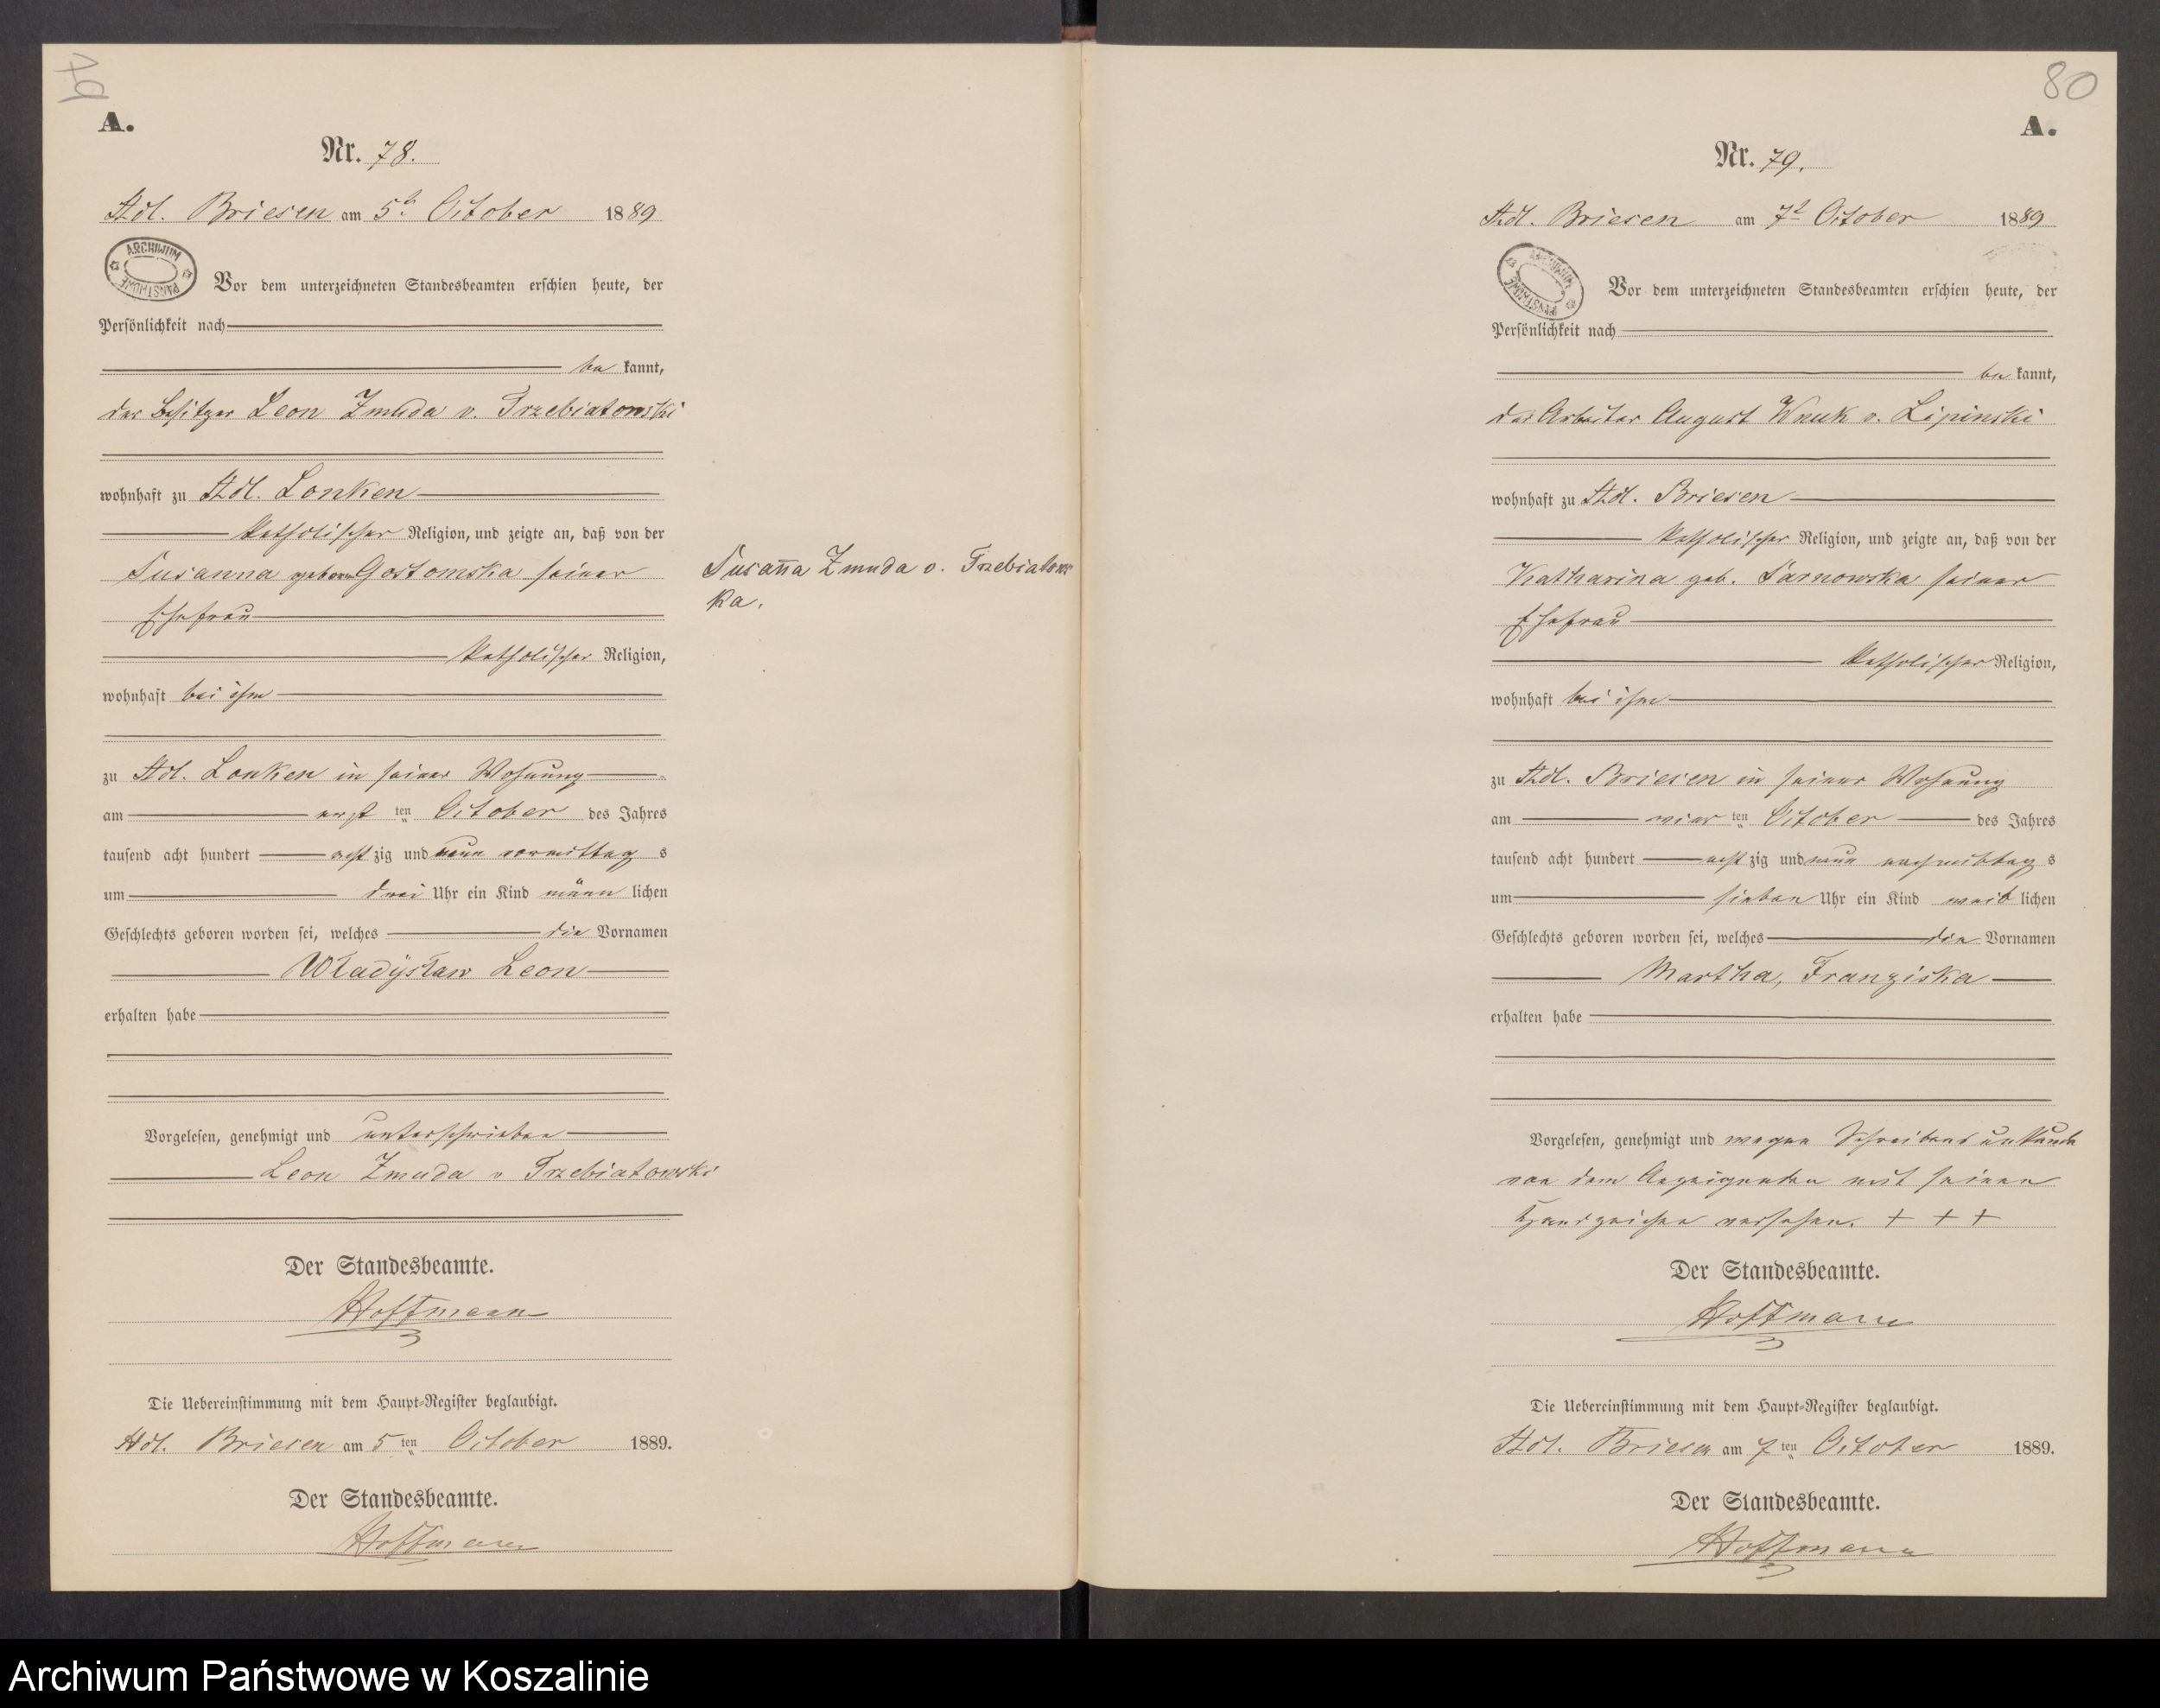 79
A.
Nr. 78.
Adl. Briesen am 5t October 1889
ARCHIWUM PAŃSTWOWE
Vor dem unterzeichneten Standesbeamten erschien heute, der
Persönlichkeit nach
be kannt,
der Besitzer Leon Zmuda v. Trzebiatowski
wohnhaft zu Adl. Lonken
katholischer Religion, und zeigte an, daß von der
Susanna geboren Gostomska seiner
Ehefrau
katholischer Religion,
wohnhaft bei ihm
zu Adl. Lonken in seiner Wohnung
am erst ten October des Jahres
tausend acht hundert acht zig und neun vormittag s
um drei Uhr ein Kind männ lichen
Geschlechts geboren worden sei, welches die Vornamen
Władysław Leon
erhalten habe
Vorgelesen, genehmigt und unterschrieben
Leon Zmuda v Trzebiatowski
Der Standesbeamte.
Hoffmann
Die Uebereinstimmung mit dem Haupt-Register beglaubigt.
Adl. Briesen am 5 ten October 1889.
Der Standesbeamte.
Hoffmann
Susanna Zmuda v. Trzebiatows
ka.
80
A.
Nr. 79.
Adl. Briesen am 7t October 1889
ARCHIWUM PAŃSTWOWE
Vor dem unterzeichneten Standesbeamten erschien heute, der
Persönlichkeit nach
be kannt,
der Arbeiter August Wnuk v. Lipinski
wohnhaft zu Adl. Briesen
katholischer Religion, und zeigte an, daß von der
Katharina geb. Tarnowska seiner
Ehefrau
katholischer Religion,
wohnhaft bei ihm
zu Adl. Briesen in seiner Wohnung
am vier ten October des Jahres
tausend acht hundert acht zig und neun nachmittag s
um sieben Uhr ein Kind weib lichen
Geschlechts geboren worden sei, welches die Vornamen
Martha, Franziska
erhalten habe
Vorgelesen, genehmigt und wegen Schreibensunkunde
von dem Anzeigenden mit seinen
Handzeichen versehen. + + +
Der Standesbeamte.
Hoffmann
Die Uebereinstimmung mit dem Haupt-Register beglaubigt.
Adl. Briesen am 7 ten October 1889.
Der Standesbeamte.
Hoffmann
Archiwum Państwowe w Koszalinie